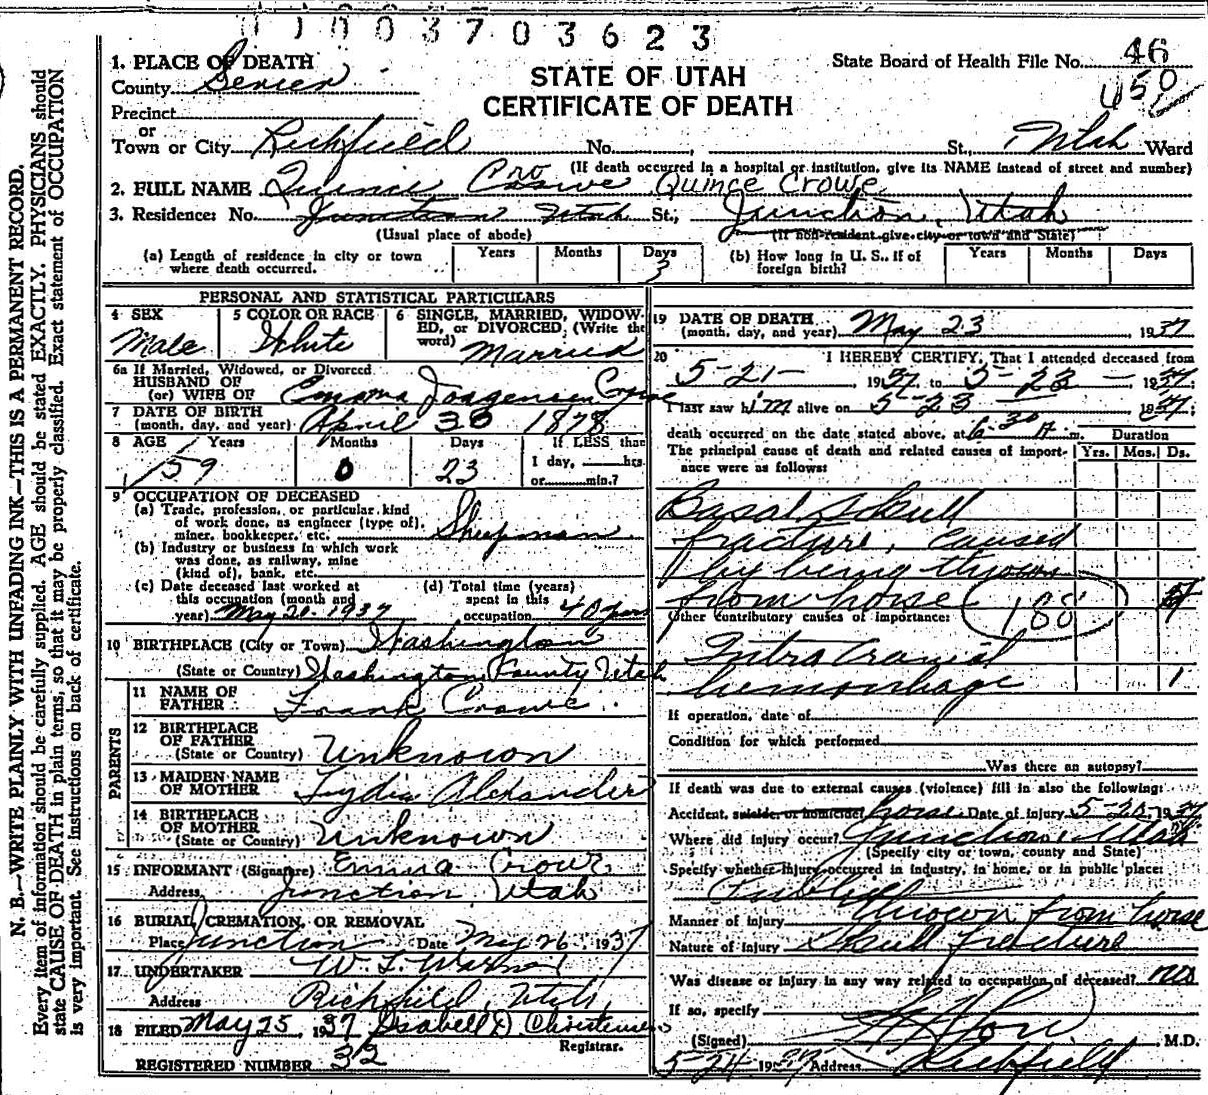 11003703623
1. PLACE OF DEATH
County Sevier
STATE OF UTAH
CERTIFICATE OF DEATH
State Board of Health File No. 46
450
Precinct
or
Town or City Richfield No. , St., Utah Ward
(If death occurred in a hospital or institution, give its NAME instead of street and number)
2. FULL NAME Quince Crowe Quince Crowe
3. Residence: No. Junction Utah St., Junction, Utah
(Usual place of abode) (If non-resident give city or town and State)
(a) Length of residence in city or town where death occurred. Years Months Days 3
(b) How long in U. S., if of foreign birth? Years Months Days
PERSONAL AND STATISTICAL PARTICULARS
4 SEX Male
5 COLOR OR RACE White
6 SINGLE, MARRIED, WIDOWED, or DIVORCED (Write the word) Married
6a If Married, Widowed, or Divorced
HUSBAND OF
(or) WIFE OF Emma Jorgensen Crowe
7 DATE OF BIRTH
(month, day, and year) April 30 1878
8 AGE Years 59 Months 0 Days 23 If LESS than 1 day, hrs. or min.?
9 OCCUPATION OF DECEASED
(a) Trade, profession, or particular kind of work done, as engineer (type of), miner, bookkeeper, etc. Sheepman
(b) Industry or business in which work was done, as railway, mine (kind of), bank, etc.
(c) Date deceased last worked at this occupation (month and year) May 20-1937
(d) Total time (years) spent in this occupation 40 years
10 BIRTHPLACE (City or Town) Washington
(State or Country) Washington County Utah
PARENTS
11 NAME OF FATHER Frank Crowe
12 BIRTHPLACE OF FATHER (State or Country) Unknown
13 MAIDEN NAME OF MOTHER Lydia Alexander
14 BIRTHPLACE OF MOTHER (State or Country) Unknown
15 INFORMANT (Signature) Emma Crowe
Address Junction Utah
16 BURIAL, CREMATION, OR REMOVAL
Place Junction Date May 26, 1937
17 UNDERTAKER
Address Richfield, Utah
18 FILED May 25 1937 Isabell D Christensen
Registrar.
REGISTERED NUMBER 32
19 DATE OF DEATH
(month, day, and year) May 23, 1937
20 I HEREBY CERTIFY, That I attended deceased from
5-21-, 1937 to 5-23-, 1937;
I last saw him alive on 5-23, 1937;
death occurred on the date stated above, at 6:30 A m. Duration
The principal cause of death and related causes of importance were as follows: Yrs. Mos. Ds.
Basal Skull
fracture, caused
by being thrown
from horse 188
Other contributory causes of importance:
Intra Cranial
hemorrhage 1
If operation, date of
Condition for which performed
Was there an autopsy?
If death was due to external causes (violence) fill in also the following:
Accident, suicide, or homicide? horse Date of injury 5-20, 1937
Where did injury occur? Junction Utah
(Specify city or town, county and State)
Specify whether injury occurred in industry, in home, or in public place:
Manner of injury Thrown from horse
Nature of injury Skull fracture
Was disease or injury in any way related to occupation of deceased? no
If so, specify
(Signed) M.D.
5-24 1937 Address Richfield
N. B.—WRITE PLAINLY WITH UNFADING INK—THIS IS A PERMANENT RECORD.
Every item of information should be carefully supplied. AGE should be stated EXACTLY. PHYSICIANS should
state CAUSE OF DEATH in plain terms, so that it may be properly classified. Exact statement of OCCUPATION
is very important. See instructions on back of certificate.